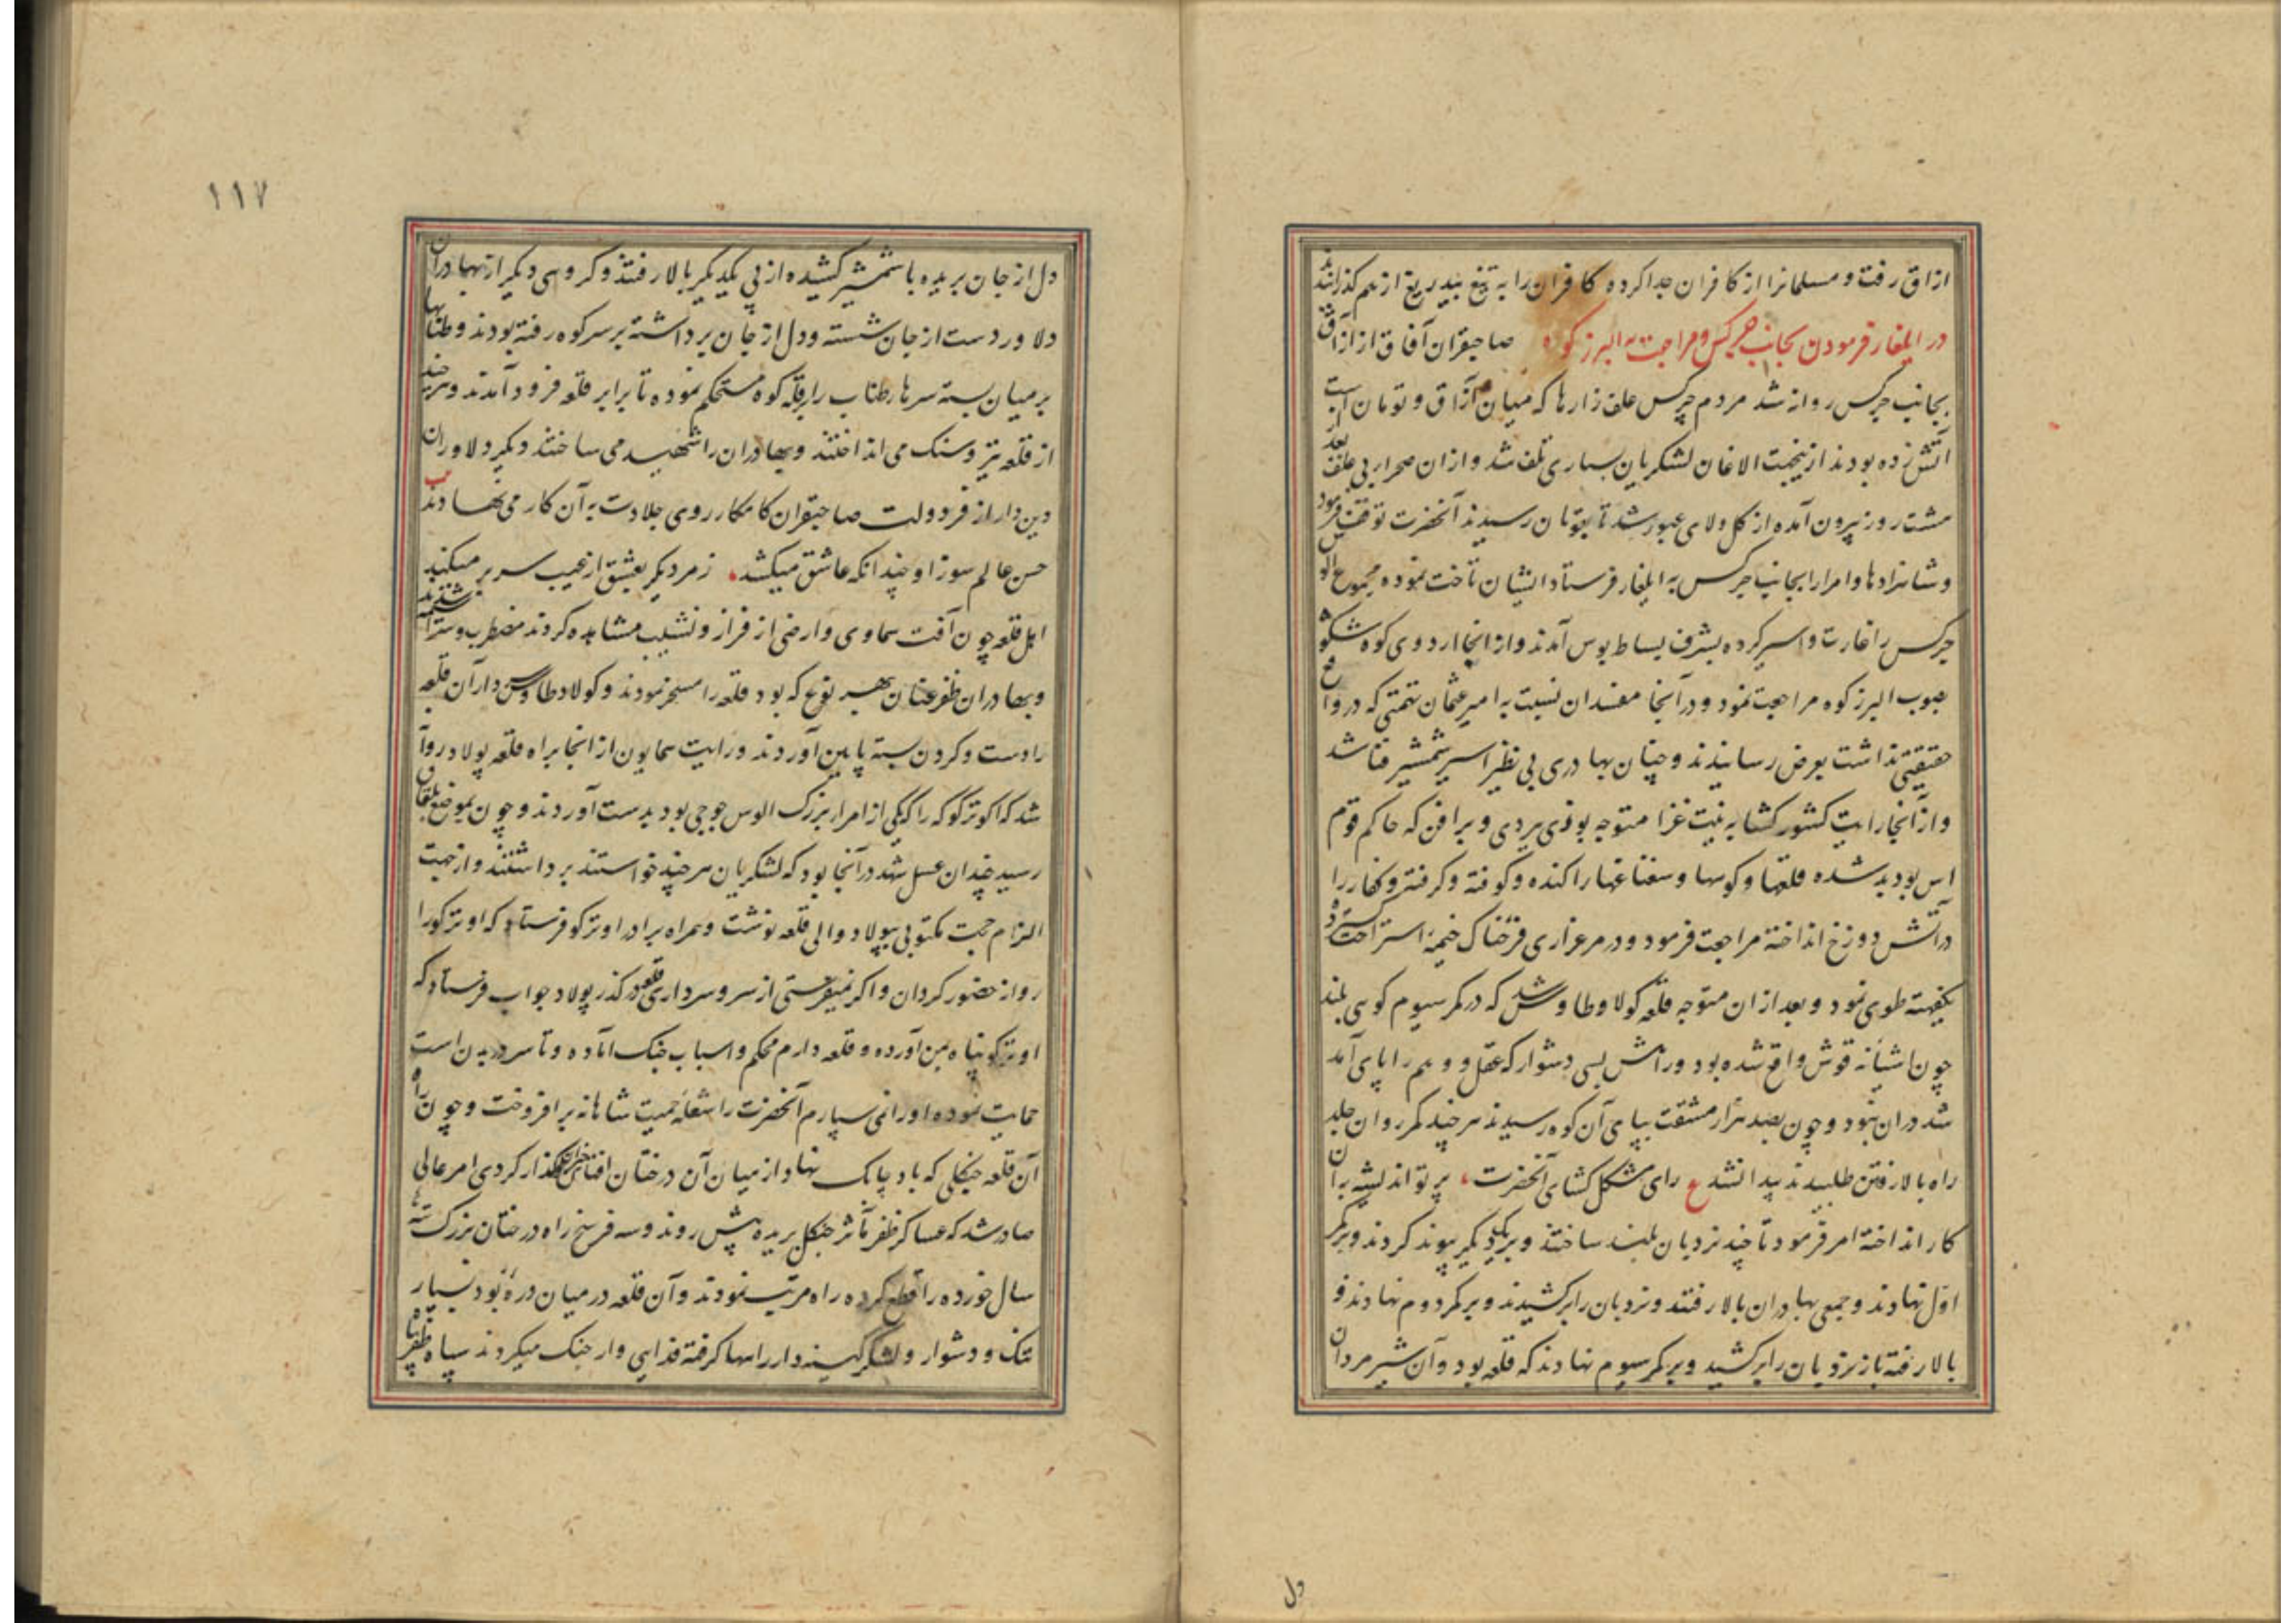 ازاق رفت و مسلمانرا از کافران جدا کرده کافران را به تیغ بیدریغ از هم گذرانیدند
در ایلغار فرمودن بجانب چرکس و مراجعت به البرز کوه صاحبقران آفاق از ازاق
بجانب چرکس روانه شد مردم چرکس علف زارها که میان آزاق و توبان است
آتش زده بودند ازینجهت الاغان لشکریان بسیاری تلف شد و ازان صحرا بی علف بعد از
هشت روز بیرون آمده از کل ولای عبور شد تا بقوبان رسیدند آنحضرت توقف فرمود
و شاهزادها و امرا را بجانب چرکس به ایلغار فرستاد ایشان تاخت نموده مجموع الوس
چرکس را غارت و اسیر کرده بشرف بساط بوس آمدند و از انجا اردوی کوه شکوه
بصوب البرز کوه مراجعت نمود و در آنجا مفسدان نسبت به امیر عثمان تهمتی که در واقع
حقیقتی نداشت بعرض رسانیدند و چنان بهادری بی نظیر اسیر شمشیر فنا شد
و از آنجا رایت کشور کشا به نیت غزا متوجه بوذی بردی و براقن که حاکم قوم
اس بود بدید شده قلعها و کوهها و سغناغها را کنده و کوفته و گرفته و کفار را
در آتش دوزخ انداخته مراجعت فرمود و در مرغزاری فرحناک خیمهٔ استراحت زد
یکهفته طوی نمود و بعد ازان متوجه قلعه کولا و طاوس شد که در کمر سیوم کوهی بلند
چون آشیانه قوش واقع شده بود و راهش بسی دشوار که عقل و وهم را پای آمد
شد دران نبود و چون بصد هزار مشقت بپای آن کوه رسیدند هر چند کمر روان جلد
راه بالا رفتن طلبیدند پیدا نشد ع رای مشکل کشای آنحضرت پرتو اندیشه بران
کار انداخته امر فرمود تا چند نردبان بلند ساختند و بر یکدیگر پیوند کردند و بر کمر
اول نهادند و جمعی بهادران بالا رفتند و نردبان را بر کشیدند و بر کمر دوم نهادند و
بالا رفته باز نردبان را بر کشید و بر کمر سیوم نهادند که قلعه بود و آن شیر مردان
دل
۱۱۷
دل از جان بریده با شمشیر کشیده از پی یکدیگر بالا رفتند و گروهی دیگر از بهادران
دلاور دست از جان شسته و دل از جان برداشته بر سر کوه رفته بودند و طنابها
بر میان بسته سرها طناب را بر قله کوه مستحکم نموده تا برابر قلعه فرود آمدند و هر چند
از قلعه تیر و سنک می انداختند و بهادران را شهید می ساختند دیگر دلاوران
دین دار از فر دولت صاحبقران کامکار روی جلادت به آن کار می نهادند
حسن عالم سوز او چندانکه عاشق میکشد زمره دیگر بعشق از غیب سر بر میکنند
اهل قلعه چون آفت سماوی و ارضی از فراز و نشیب مشاهده کردند مضطرب و سراسیمه شدند
و بهادران ظفر عنان بهر نوع که بود قلعه را مسخر نمودند و کولا و طاوس دار آن قلعه
را دست و گردن بسته پایین آوردند و رایت همایون از انجا براه قلعه پولاد روان
شد که اوترکو که یکی از امرا بزرک الوس جوجی بود بدست آوردند و چون بموضع بلقان
رسید چندان عسل شهد در آنجا بود که لشکریان هر چند خواستند برداشتند و از جهت
الزام حجت مکتوبی بپولاد والی قلعه نوشت و همراه برادر اوترکو فرستاد که اوترکو را
روانه حضور گردان و اگر نمیفرستی از سر و سرداری قلعه در گذر پولاد جواب فرستاد که
اوترکو پناه بمن آورده و قلعه دارم محکم و اسباب جنک آماده و تا سر در بدن است
حمایت نموده او را نمی سپارم آنحضرت را شعله حمیت شاهانه بر افروخت و چون راه
آن قلعه جنکلی که باد پاک نهاد از میان آن درختان افتان خیزان گذار کردی امر عالی
صادر شد که عساکر ظفر مآثر جنکل بریده پیش روند و سه فرسخ راه درختان بزرک تنه
سال خورده را قطع کرده راه مرتب نمودند و آن قلعه در میان درهٔ بود بسیار
تنک و دشوار و لشکر کینه دار راهها گرفته فدایی وار جنک میکردند سپاه ظفر پناه